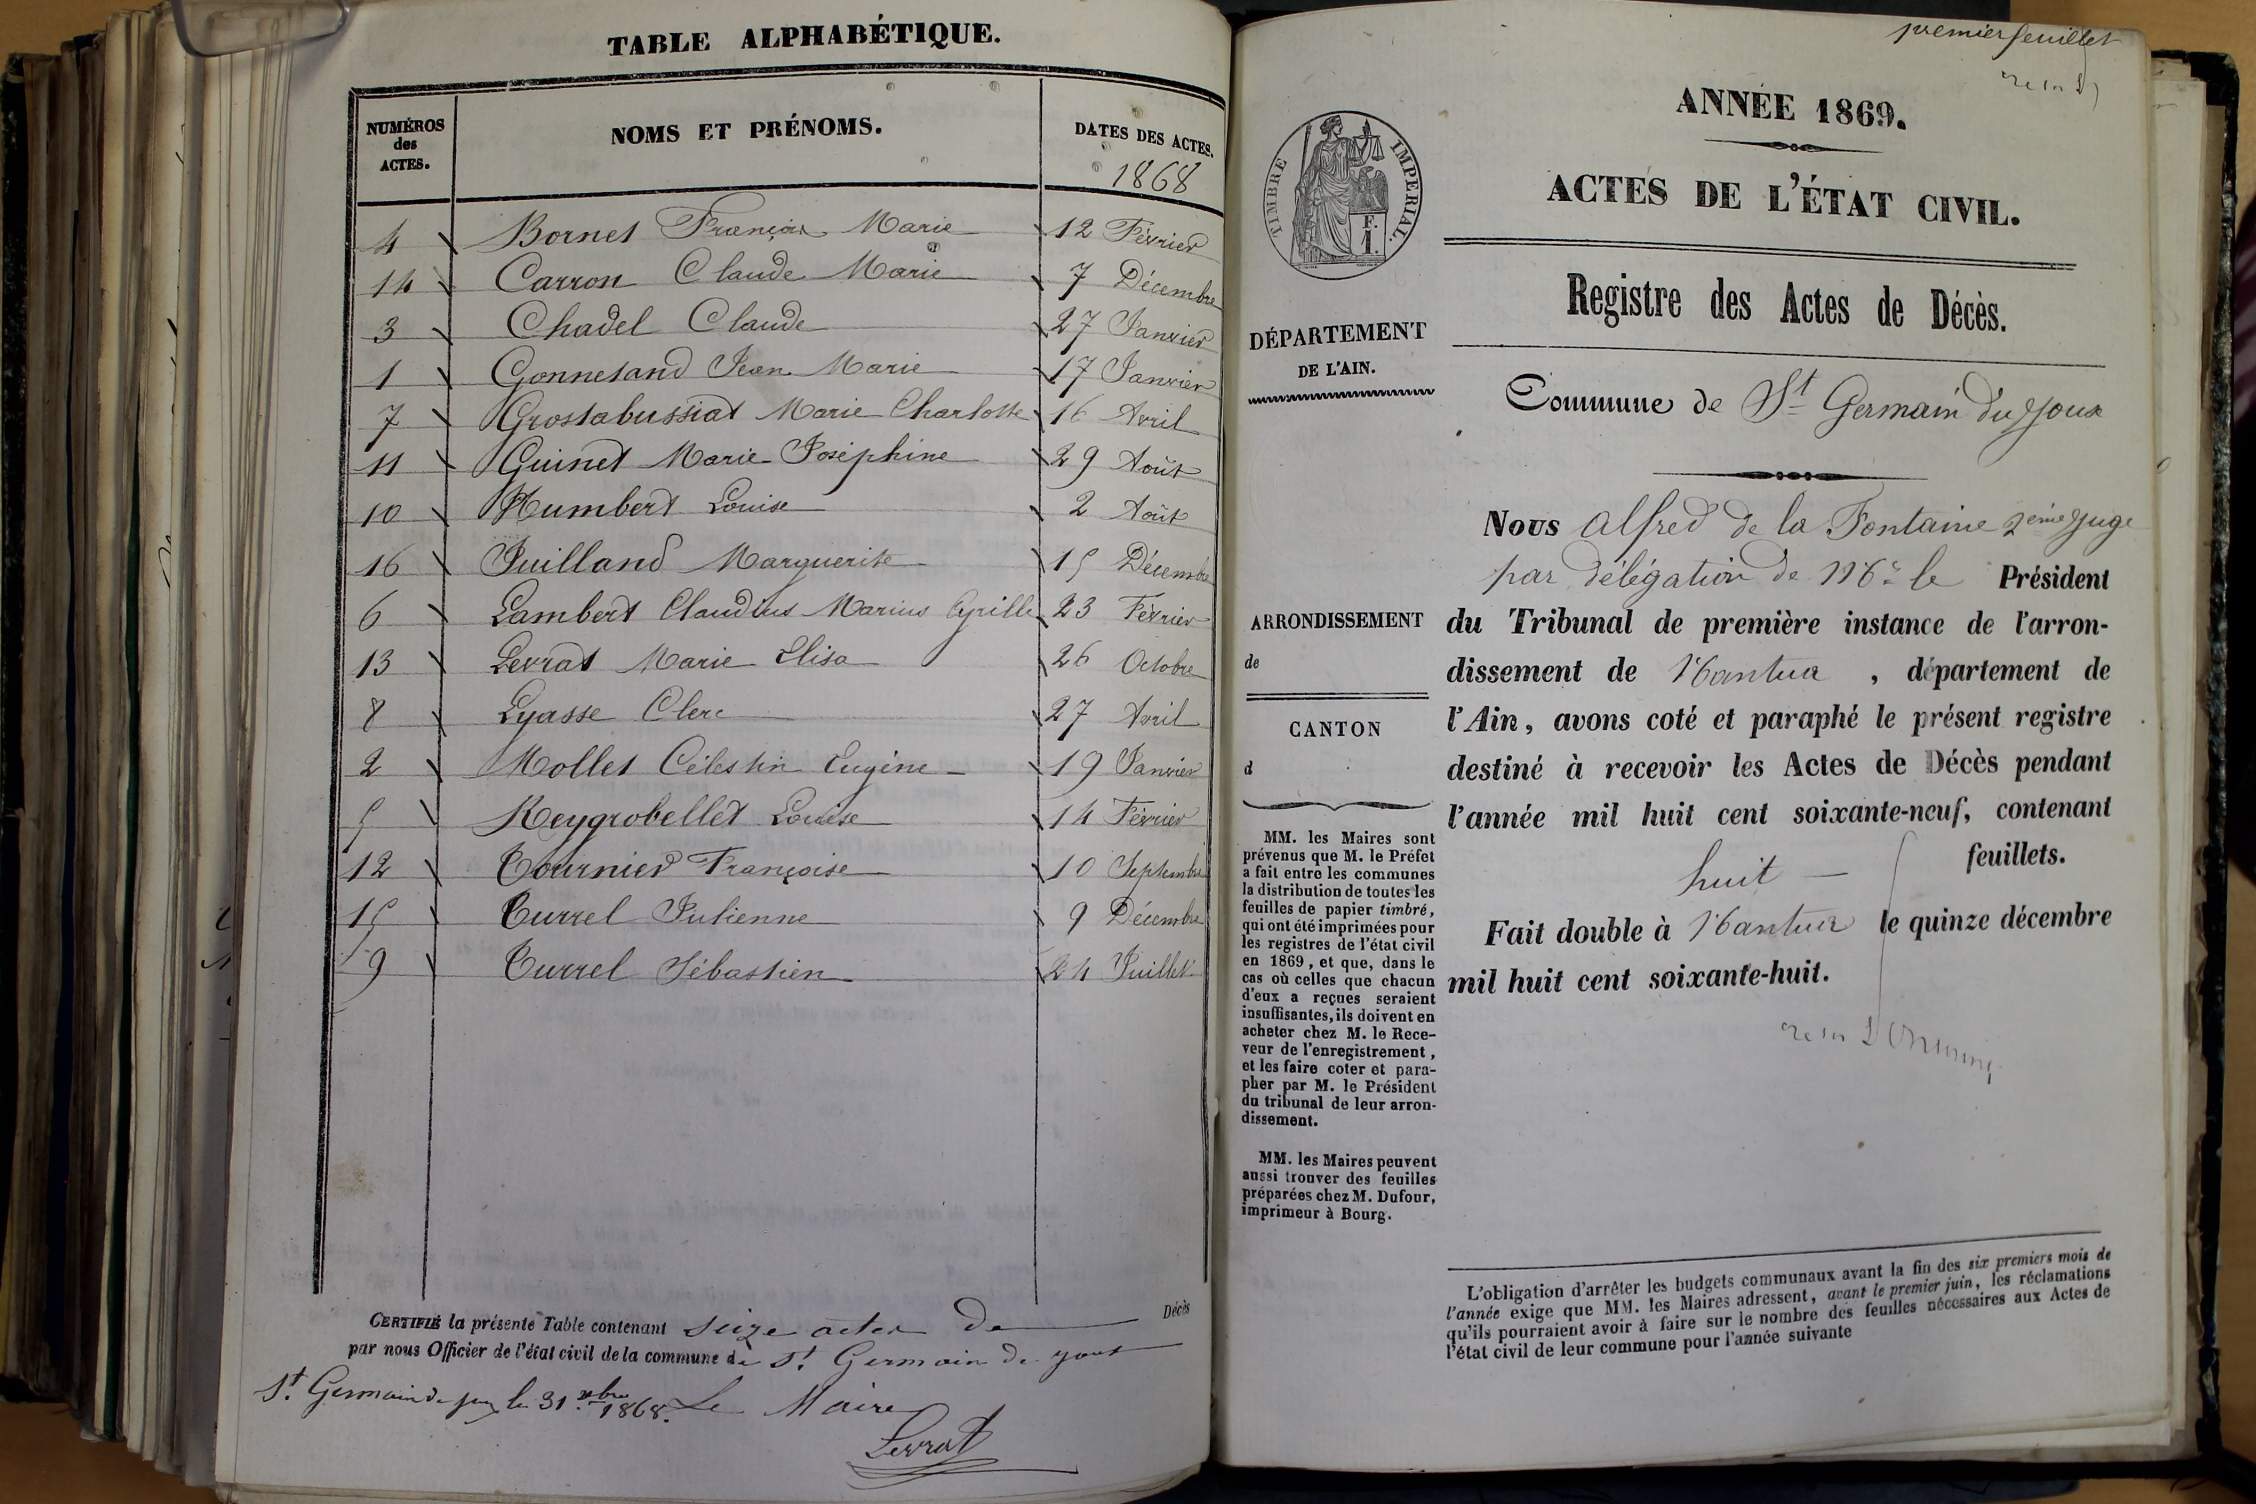 TABLE ALPHABÉTIQUE.
NUMÉROS des ACTES. NOMS ET PRÉNOMS. DATES DES ACTES.
1868
4 Bornet François Marie 12 Février
14 Carron Claude Marie 7 Décembre
3 Chadel Claude 27 Janvier
1 Gonnetand Jean Marie 17 Janvier
7 Grostabussiat Marie Charlotte 16 Avril
11 Guinet Marie Joséphine 29 Août
10 Humbert Louise 2 Août
16 Juilland Marguerite 15 Décembre
6 Lambert Claudius Marius Cyrille 23 Février
13 Levrat Marie Elisa 26 Octobre
8 Lyasse Clerc 27 Avril
2 Mollet Célestin Eugène 19 Janvier
5 Reygrobellet Louise 14 Février
12 Tournier Françoise 10 Septembre
15 Turrel Julienne 9 Décembre
9 Turrel Sébastien 24 Juillet
CERTIFIÉ la présente Table contenant seize actes de Décès
par nous Officier de l'état civil de la commune de St Germain de joux
St Germain de joux le 31 xbre 1868. Le Maire
Levrat
premier feuillet
ANNÉE 1869.
ACTES DE L'ÉTAT CIVIL.
TIMBRE IMPÉRIAL.
F.
1.
Registre des Actes de Décès.
DÉPARTEMENT
DE L'AIN.
Commune de St Germain du Joux
Nous Alfred de la Fontaine 2ème Juge
par délégation de Mr le Président
du Tribunal de première instance de l'arron-
dissement de Nantua, département de
l'Ain, avons coté et paraphé le présent registre
destiné à recevoir les Actes de Décès pendant
l'année mil huit cent soixante-neuf, contenant
huit feuillets.
Fait double à Nantua le quinze décembre
mil huit cent soixante-huit.
ARRONDISSEMENT
de
CANTON
d
MM. les Maires sont
prévenus que M. le Préfet
a fait entre les communes
la distribution de toutes les
feuilles de papier timbré,
qui ont été imprimées pour
les registres de l'état civil
en 1869, et que, dans le
cas où celles que chacun
d'eux a reçues seraient
insuffisantes, ils doivent en
acheter chez M. le Rece-
veur de l'enregistrement,
et les faire coter et para-
pher par M. le Président
du tribunal de leur arron-
dissement.
MM. les Maires peuvent
aussi trouver des feuilles
préparées chez M. Dufour,
imprimeur à Bourg.
L'obligation d'arrêter les budgets communaux avant la fin des six premiers mois de
l'année exige que MM. les Maires adressent, avant le premier juin, les réclamations
qu'ils pourraient avoir à faire sur le nombre des feuilles nécessaires aux Actes de
l'état civil de leur commune pour l'année suivante